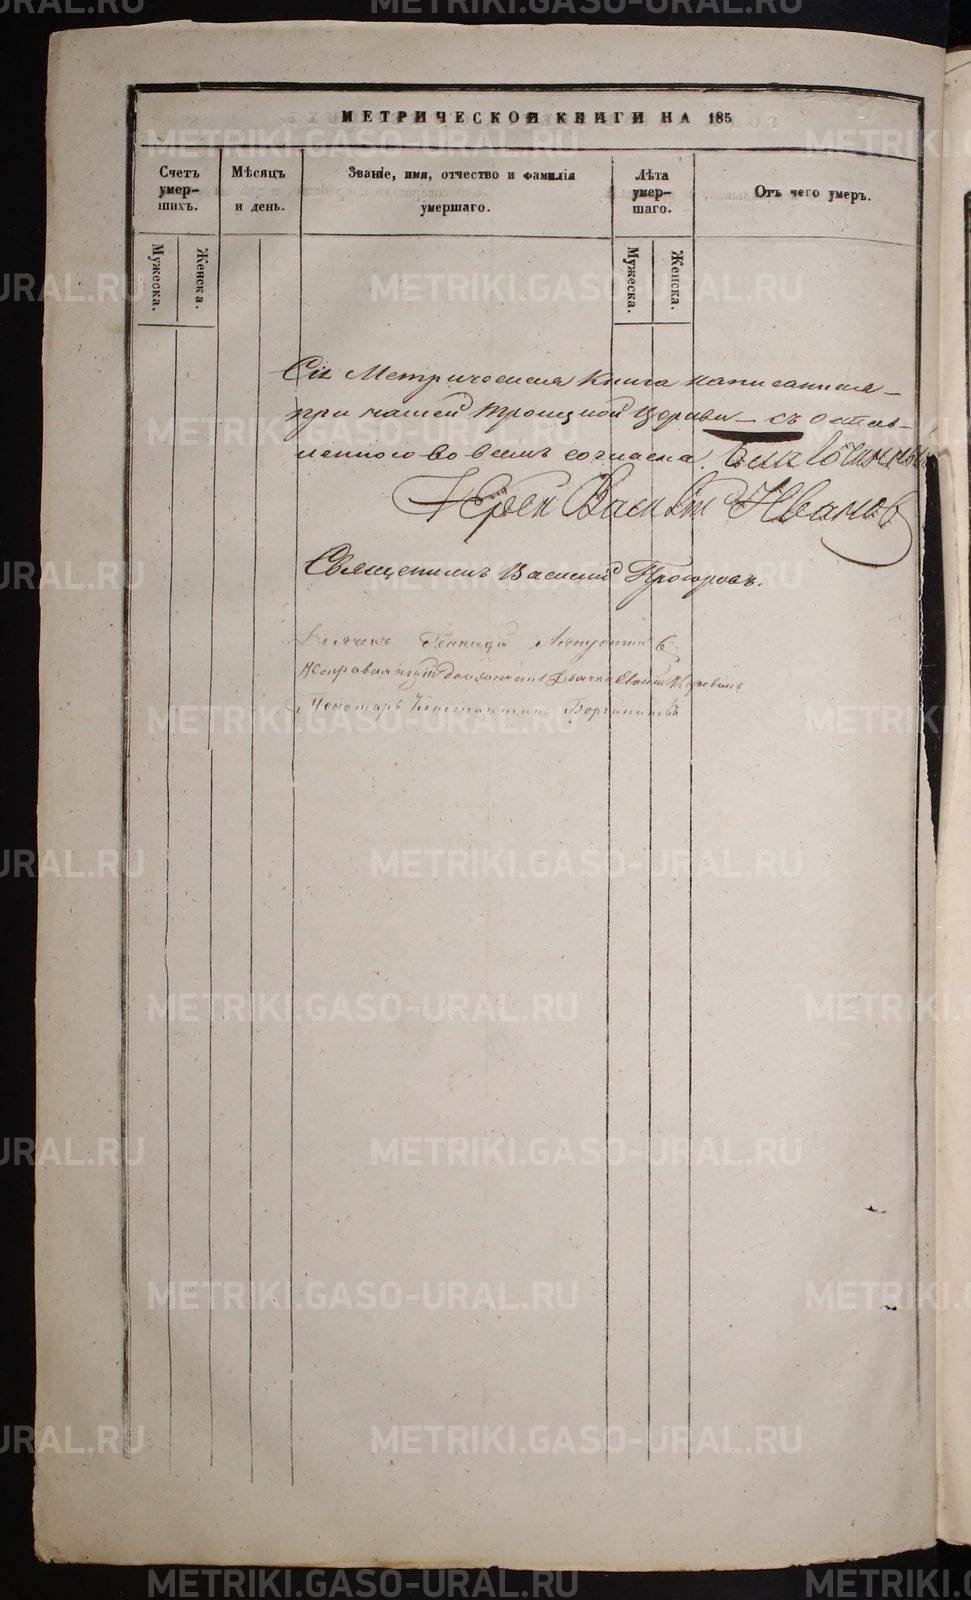 МЕТРИЧЕСКОЙ КНИГИ НА 185
Счетъ умер-шихъ.
Мѣсяцъ и день.
Званіе, имя, отчество и фамилія умершаго.
Лѣта умер-шаго.
Отъ чего умеръ.
Мужеска.
Женска.
Мужеска.
Женска.
Сія Метрическая Книга написанная
при нашей Троицкой Церкви съ остав-
ленною во всемъ согласна. Благочинный
Іерей Василій Ивановъ
Священникъ Василій
Дьячекъ Геннадій
Исправляющій должность Дьячка
Пономарь Константинъ
METRIKI.GASO-URAL.RU